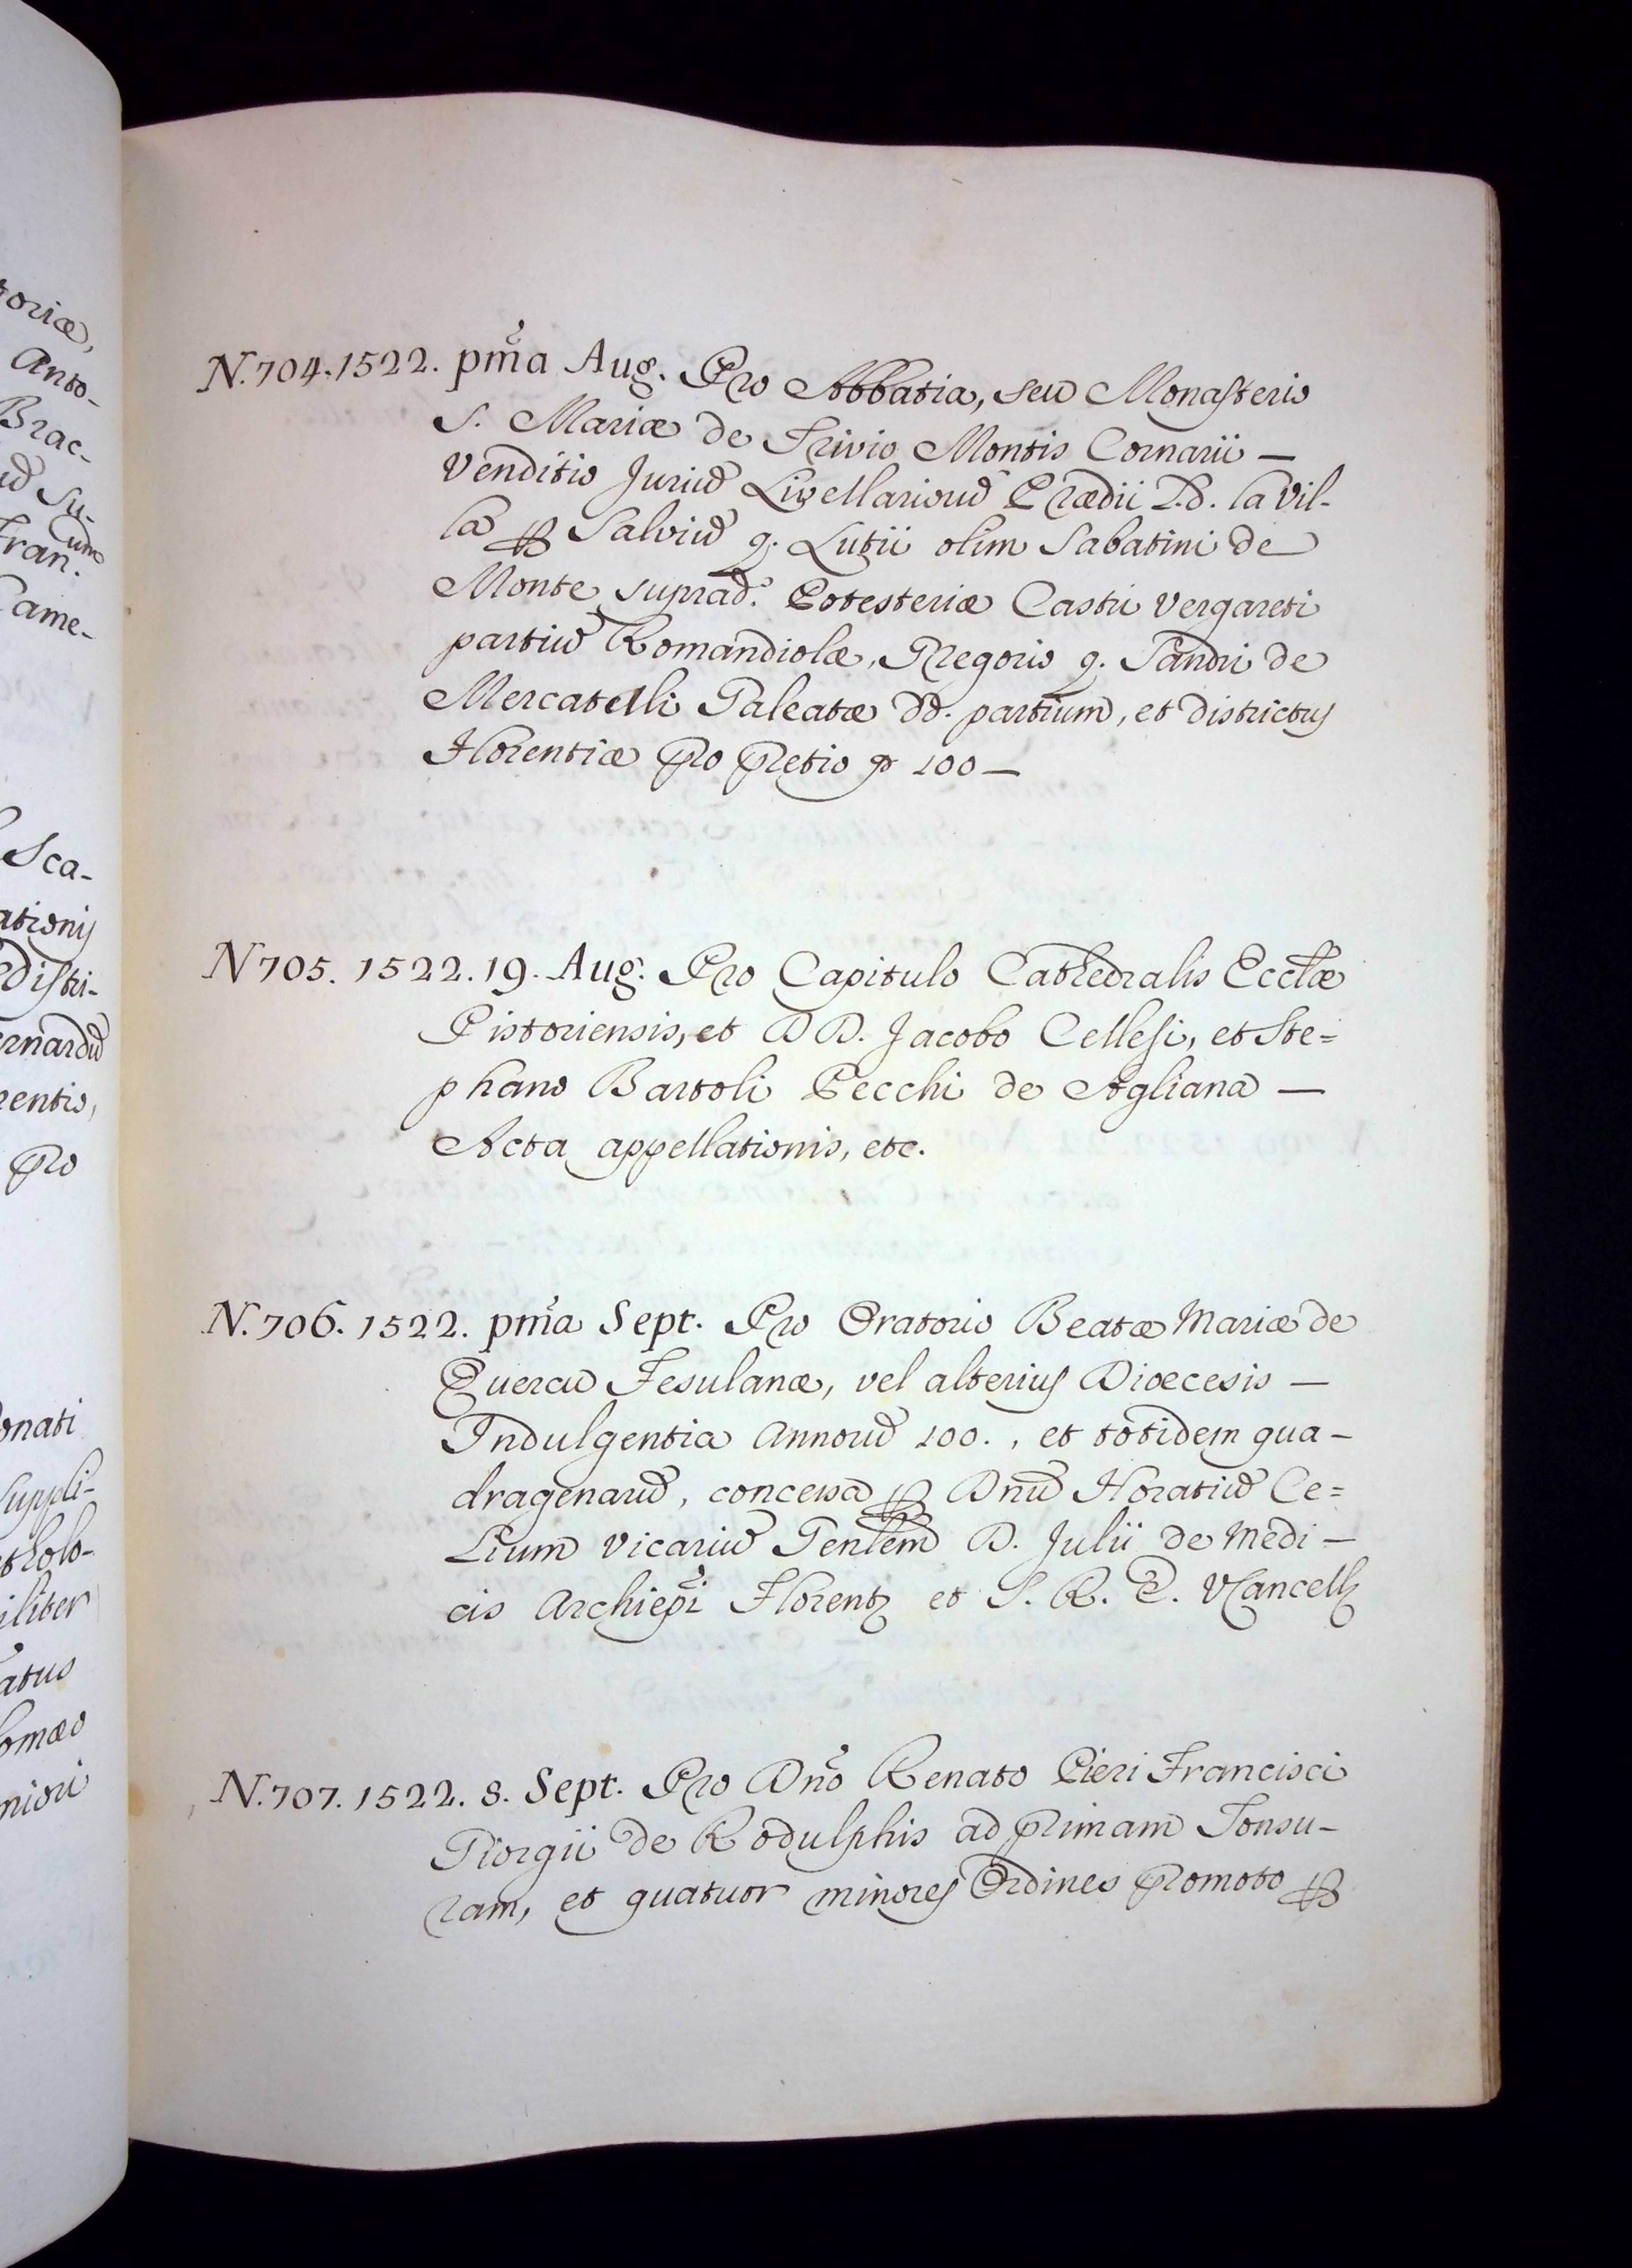 toriæ,
Anto-
Brac-
Su-
cum
Fran.
Came-
Sca-
ationis
Distri-
ernardũ
rentio,
pro
onati
Suppli-
tholo-
iliter
atus
lomæo
niori
N.704.1522. pm̃a Aug. Pro Abbatia, seu Monasterio
S. Mariæ de Trivio Montis Cornarii —
Venditio Juriũ Livellarioruũ Prædii L.d. la Vil-
la ꝑ Salviũ q. Lutii olim Sabatini de
Monte suprad. Potesteriæ Castri Vergareti
partiũ Romandiolæ, Gregorio q. Sandri de
Mercatelli Galeatæ dd. partium, et districtus
Florentiæ pro pretio 100 —
N 705. 1522. 19. Aug. Pro Capitulo Cathedralis Eccl̃æ
Pistoriensis, et D D. Jacobo Cellesi, et Ste=
phano Bartoli Pecchi de Agliana —
Acta appellationis, etc.
N.706. 1522. pm̃a Sept. Pro Oratorio Beatæ Mariæ de
Quercu Fesulanæ, vel alterius Diœcesis —
Indulgentia Annorũ 100., et totidem qua-
dragenarũ, concessa ꝑ Dnũ Horatiũ Ce=
lium Vicariũ Gen̄lem D. Julii de Medi —
cis Archiep̃i Florent̃ et S. R. E. VCancell̃
N.707. 1522. 8. Sept. Pro Dño Renato Pieri Francisci
Giorgii de Rodulphis ad primam Tonsu-
ram, et quatuor minores Ordines promoto ꝑ